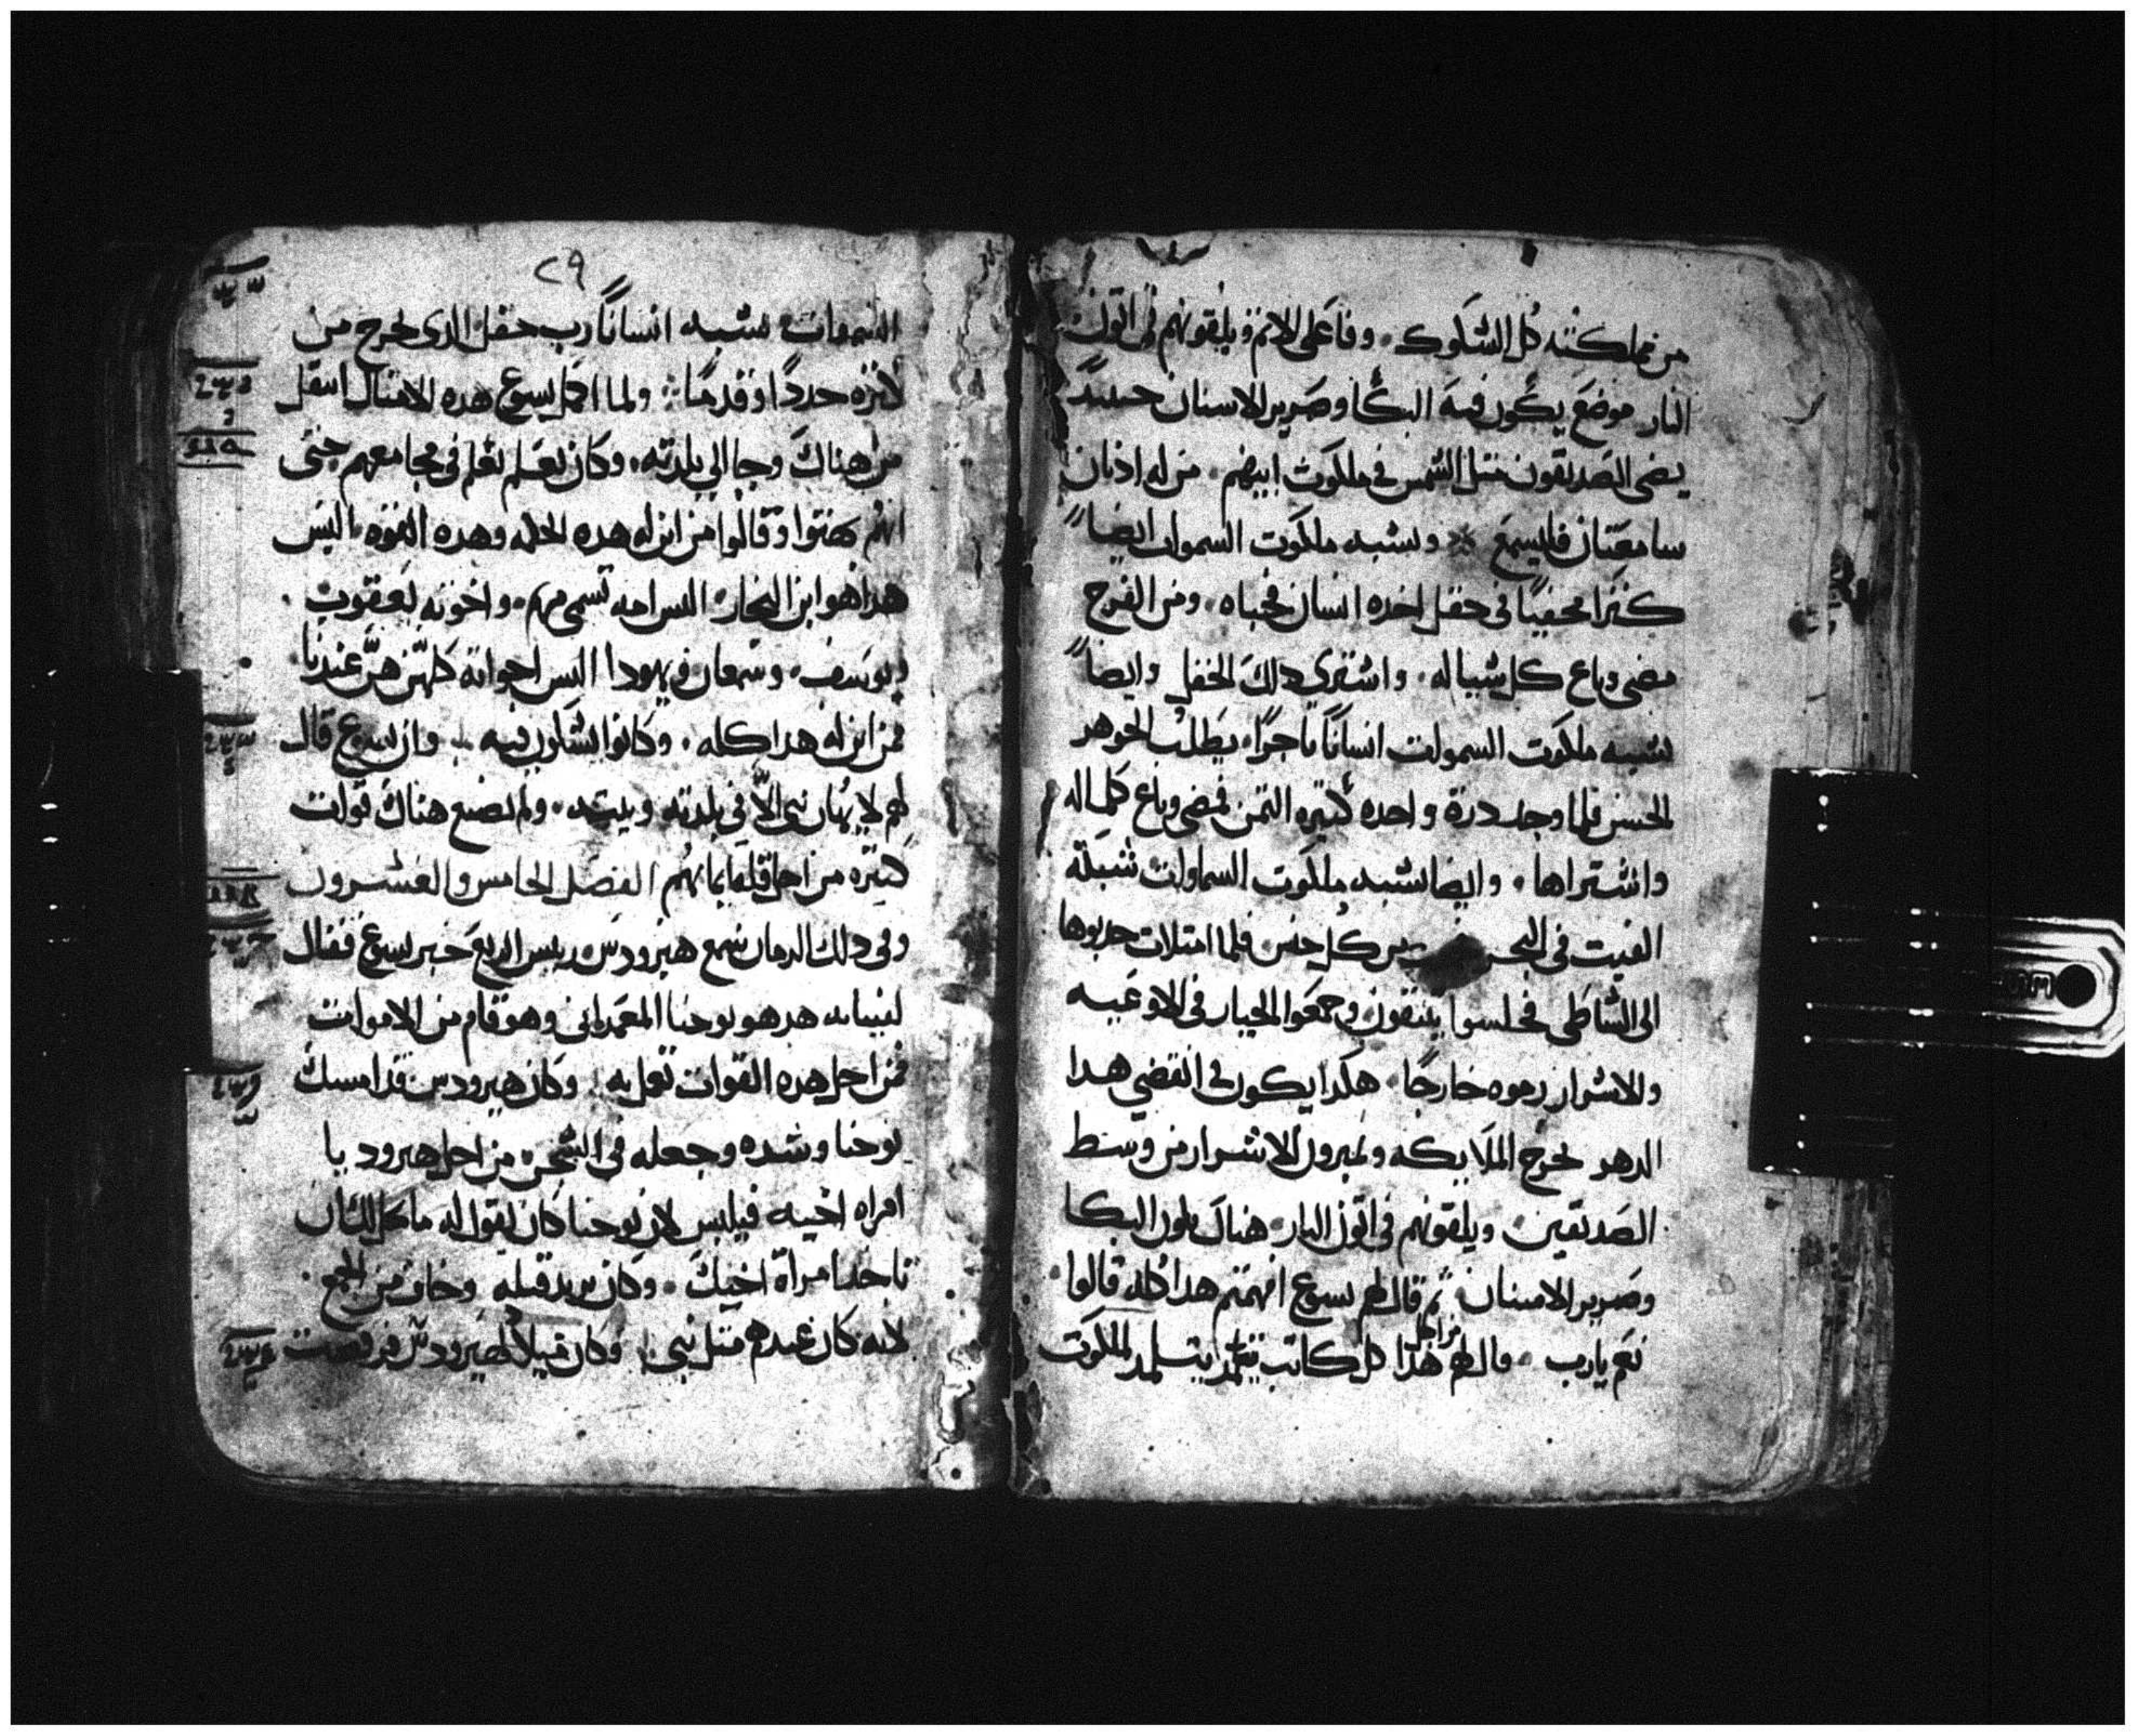 من مملكته كل الشكوك. وفاعلى الاثم ويلقونهم فى اتون
النار موضع يكون فيه البكا وصرير الاسنان حينيد
يضى الصديقون متل الشمس فى ملكوت ابيهم. من له ادنان
سامعتان فليسمع ※ وتشبه ملكوت السموات ايضاً
كنزا مخفيًا فى حقل اخده انسان فخباه. ومن الفرح
مضى وباع كل شيا له. واشترى دلك الحقل وايضاً
تشبه ملكوت السموات انسانًا تاجرًا. يطلب الجوهر
الحسن فلما وجد درة واحده كتيره التمن فمضى وباع كلما له
واشتراها. وايضا تشبه ملكوت السماوات شبكة
القيت فى البحر من كل جنس فلما امتلات جدبوها
الى الشاطى فجلسوا ينتقون وجمعوا الخيار فى الاوعيه
والاشرار رموه خارجًا. هكدا يكون فى انقضي هدا
الدهر تخرج الملايكه ويميزون الاشرار من وسط
الصديقين. ويلقونهم فى اتون النار. هناك يكون البكا
وصرير الاسنان. تم قال لهم يسوع افهمتم هدا كله قالوا
نعم يارب. قال لهم من اجل هدا كل كاتب يتلمد لملكوت
٢٩
السموات تشبه انسانًا رب حقل الدى يخرج من
كنزه جددًا وقدمًا ※ ولما اكمل يسوع هده الامتال انتقل
من هناك وجا الي بلدته. وكان يعلم فى مجامعهم حتى
انهم بهتوا وقالوا من اين له هده الحكمه وهده القوه. اليس
هدا هو ابن النجار. اليس امه تسمى مريم. واخوته يعقوب.
ويوسف. وسمعان ويهودا اليس اخواته كلهن هن عندنا
فمن اين له هدا كله. وكانوا يشكون فيه وان يسوع قال
لهم لا يهان نبى الا فى بلدته وبيته. ولم يصنع هناك قوات
كتيره من اجل قلة ايمانهم الفصل الخامس والعشرون
وفى دلك الزمان سمع هيرودس ريس الربع خبر يسوع فقال
لغلمانه هدا هو يوحنا المعمدانى وهو قام من الاموات
فمن اجل هده القوات تعمل به. وكان هيرودس قد امسك
يوحنا وشده وجعله فى السجن. من اجل هيروديا
امراه اخيه فيلبس لان يوحنا كان يقول له ما كان لك ان
تاخد امراة اخيك. وكان يريد قتله وخاف من الجمع.
لانه كان عندهم متل نبى. وكان ميلاد هيرودس فرقصت